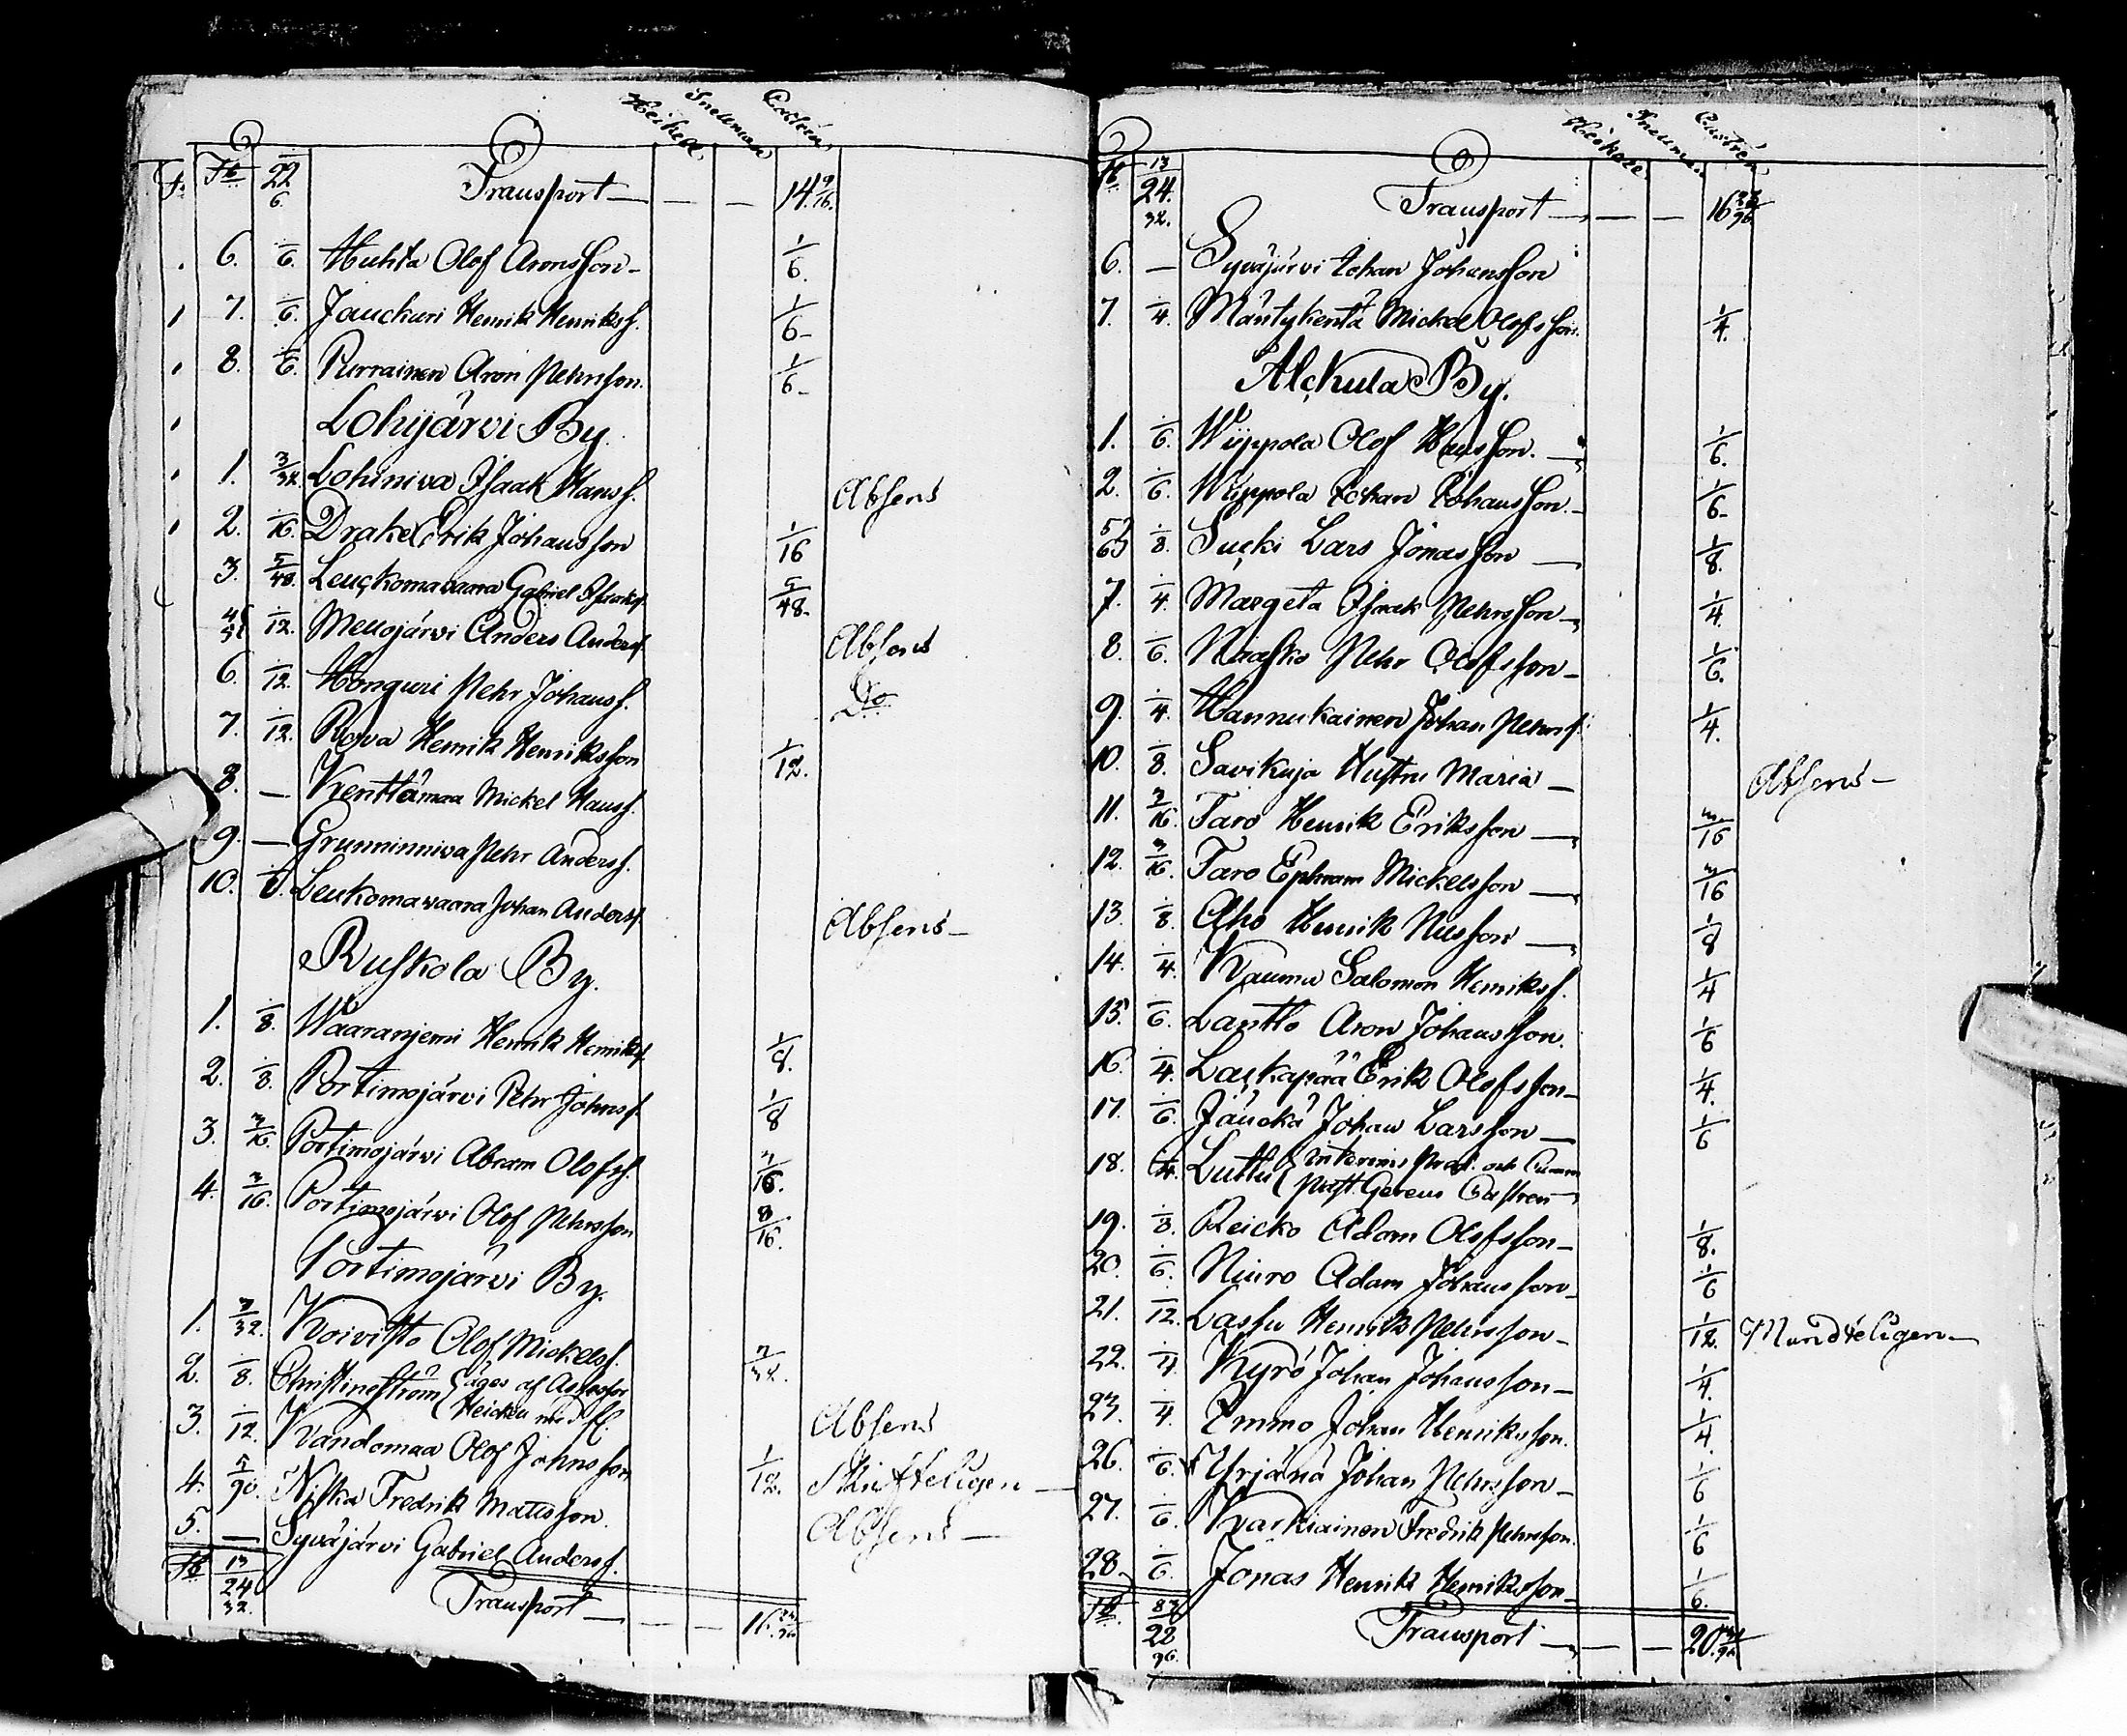 Heickell Sneuman Castrén
Transport — — — 14 9/16.
6. 1/6. Huhta Olof Aronsson — 1/6.
7. 1/6. Jauckuri Henrik Henriksf. 1/6
8. 1/6. Purrainen Aron Pehrsson. 1/6
Lohijärvi By.
1. 3/32. Lohiniva Isaak Hansf. Absens
2. 1/16. Drake Erik Johansson 1/16
3. 5/48. Leuckomavaara Gabriel Isaaksf. 5/48.
1/12. Mellojärvi Anders Andersf. Absens
6. 1/12. Honguri Pehr Johansf. Do
7. 1/12. Rova Henrik Henriksson 1/12.
8. — Kenttämaa Mickel Hansf.
9. — Grunninniva Pehr Andersf.
10. Leukomavaara Johan Andersf. Absens —
Ruskola By.
1. 1/8. Waaranjemi Henrik Henriksf. 1/8.
2. 1/8. Portimojärvi Pehr Johnsf. 1/8
3. 3/16. Portimojärvi Abram Olofsf. 3/16.
4. 3/16. Portimojärvi Olof Pehrsson 3/16.
Portimojärvi By.
1. 7/32. Koivisto Olof Mickelsf. 7/32.
2. 1/8. Christineström äges af Assessor
Heickell med fl. Absens
3. 1/12. Kandomaa Olof Johnsson 1/12. Skrifteligen —
4. 5/96. Niska Fredrik Matsson. Absens —
5. — Syväjärvi Gabriel Andersf.
13/24 32. Transport — — — 16.
Heickell Sneuman Castrén
13/24. 32. Transport — — — 16
6. — Syväjärvi Johan Johansson
7. 1/4. Mäntykentä Mickel Olofsson. 1/4.
Alckula By.
1. 1/6. Wijppola Olof Hansson. — 1/6.
2. 1/6. Wijppola Johan Johansson. — 1/6
1/8. Sucki Lars Jonasson — 1/8.
7. 1/4. Margeta Isaak Pehrsson — 1/4.
8. 1/6. Naasko Pehr Olofsson — 1/6.
9. 1/4. Hannukainen Johan Pehrsf. 1/4.
10. 1/8. Savikuja Hustru Maria — Absens —
11. 3/16. Taro Henrik Eriksson — 3/16
12. 3/16. Taro Ephram Mickelsson — 3/16
13. 1/8. Aho Henrik Nilsson — 1/8
14. 1/4. Kauma Salomon Henriksf. 1/4
15. 1/6. Lantto Aron Johansson. 1/6
16. 1/4. Lackapää Erik Olofsson — 1/4.
17. 1/6. Jäuckä Johan Larsson — 1/6
18. 1/4. Luttu interims Prad. och
Past. Gerens Castren —
19. 1/8. Reicko Adam Olofsson — 1/8.
20. 1/6. Niuro Adam Johansson — 1/6
21. 1/12. Lassu Henrik Pehrsson — 1/12. Mundteligen —
22. 1/4. Kyrö Johan Johansson — 1/4.
23. 1/4. Emmo Johan Henriksson. 1/4.
26. 1/6. Yrjänä Johan Pehrsson — 1/6
27. 1/6. Karkiainen Fredrik Pehrsson. 1/6
28. 1/6. Jonas Henrik Henriksson — 1/6.
22 Transport — — — 20